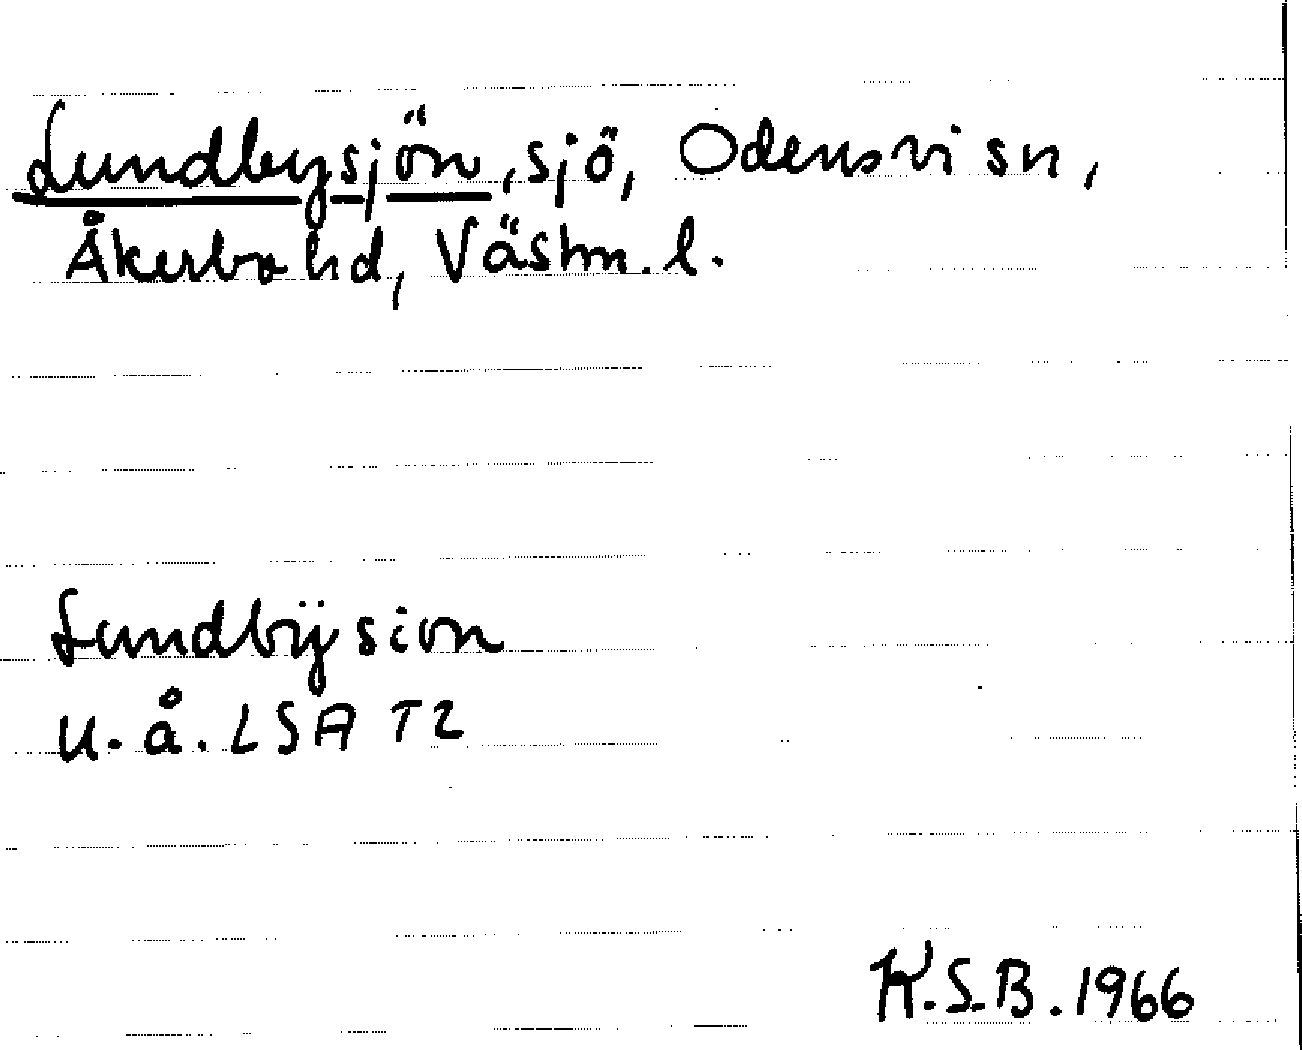 Lundbysjön, sjö, Odensvi sn,
Åkerbo hd, Västm. l.
Lundbÿsion
u. å. LSA T2
K.S.B. 1966